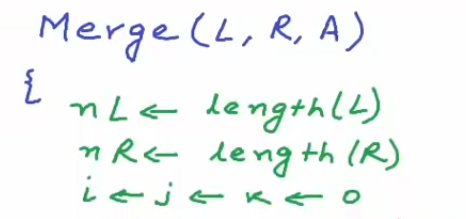 Merge(L, R, A)
{
nL ← length(L)
nR ← length(R)
i ← j ← k ← 0